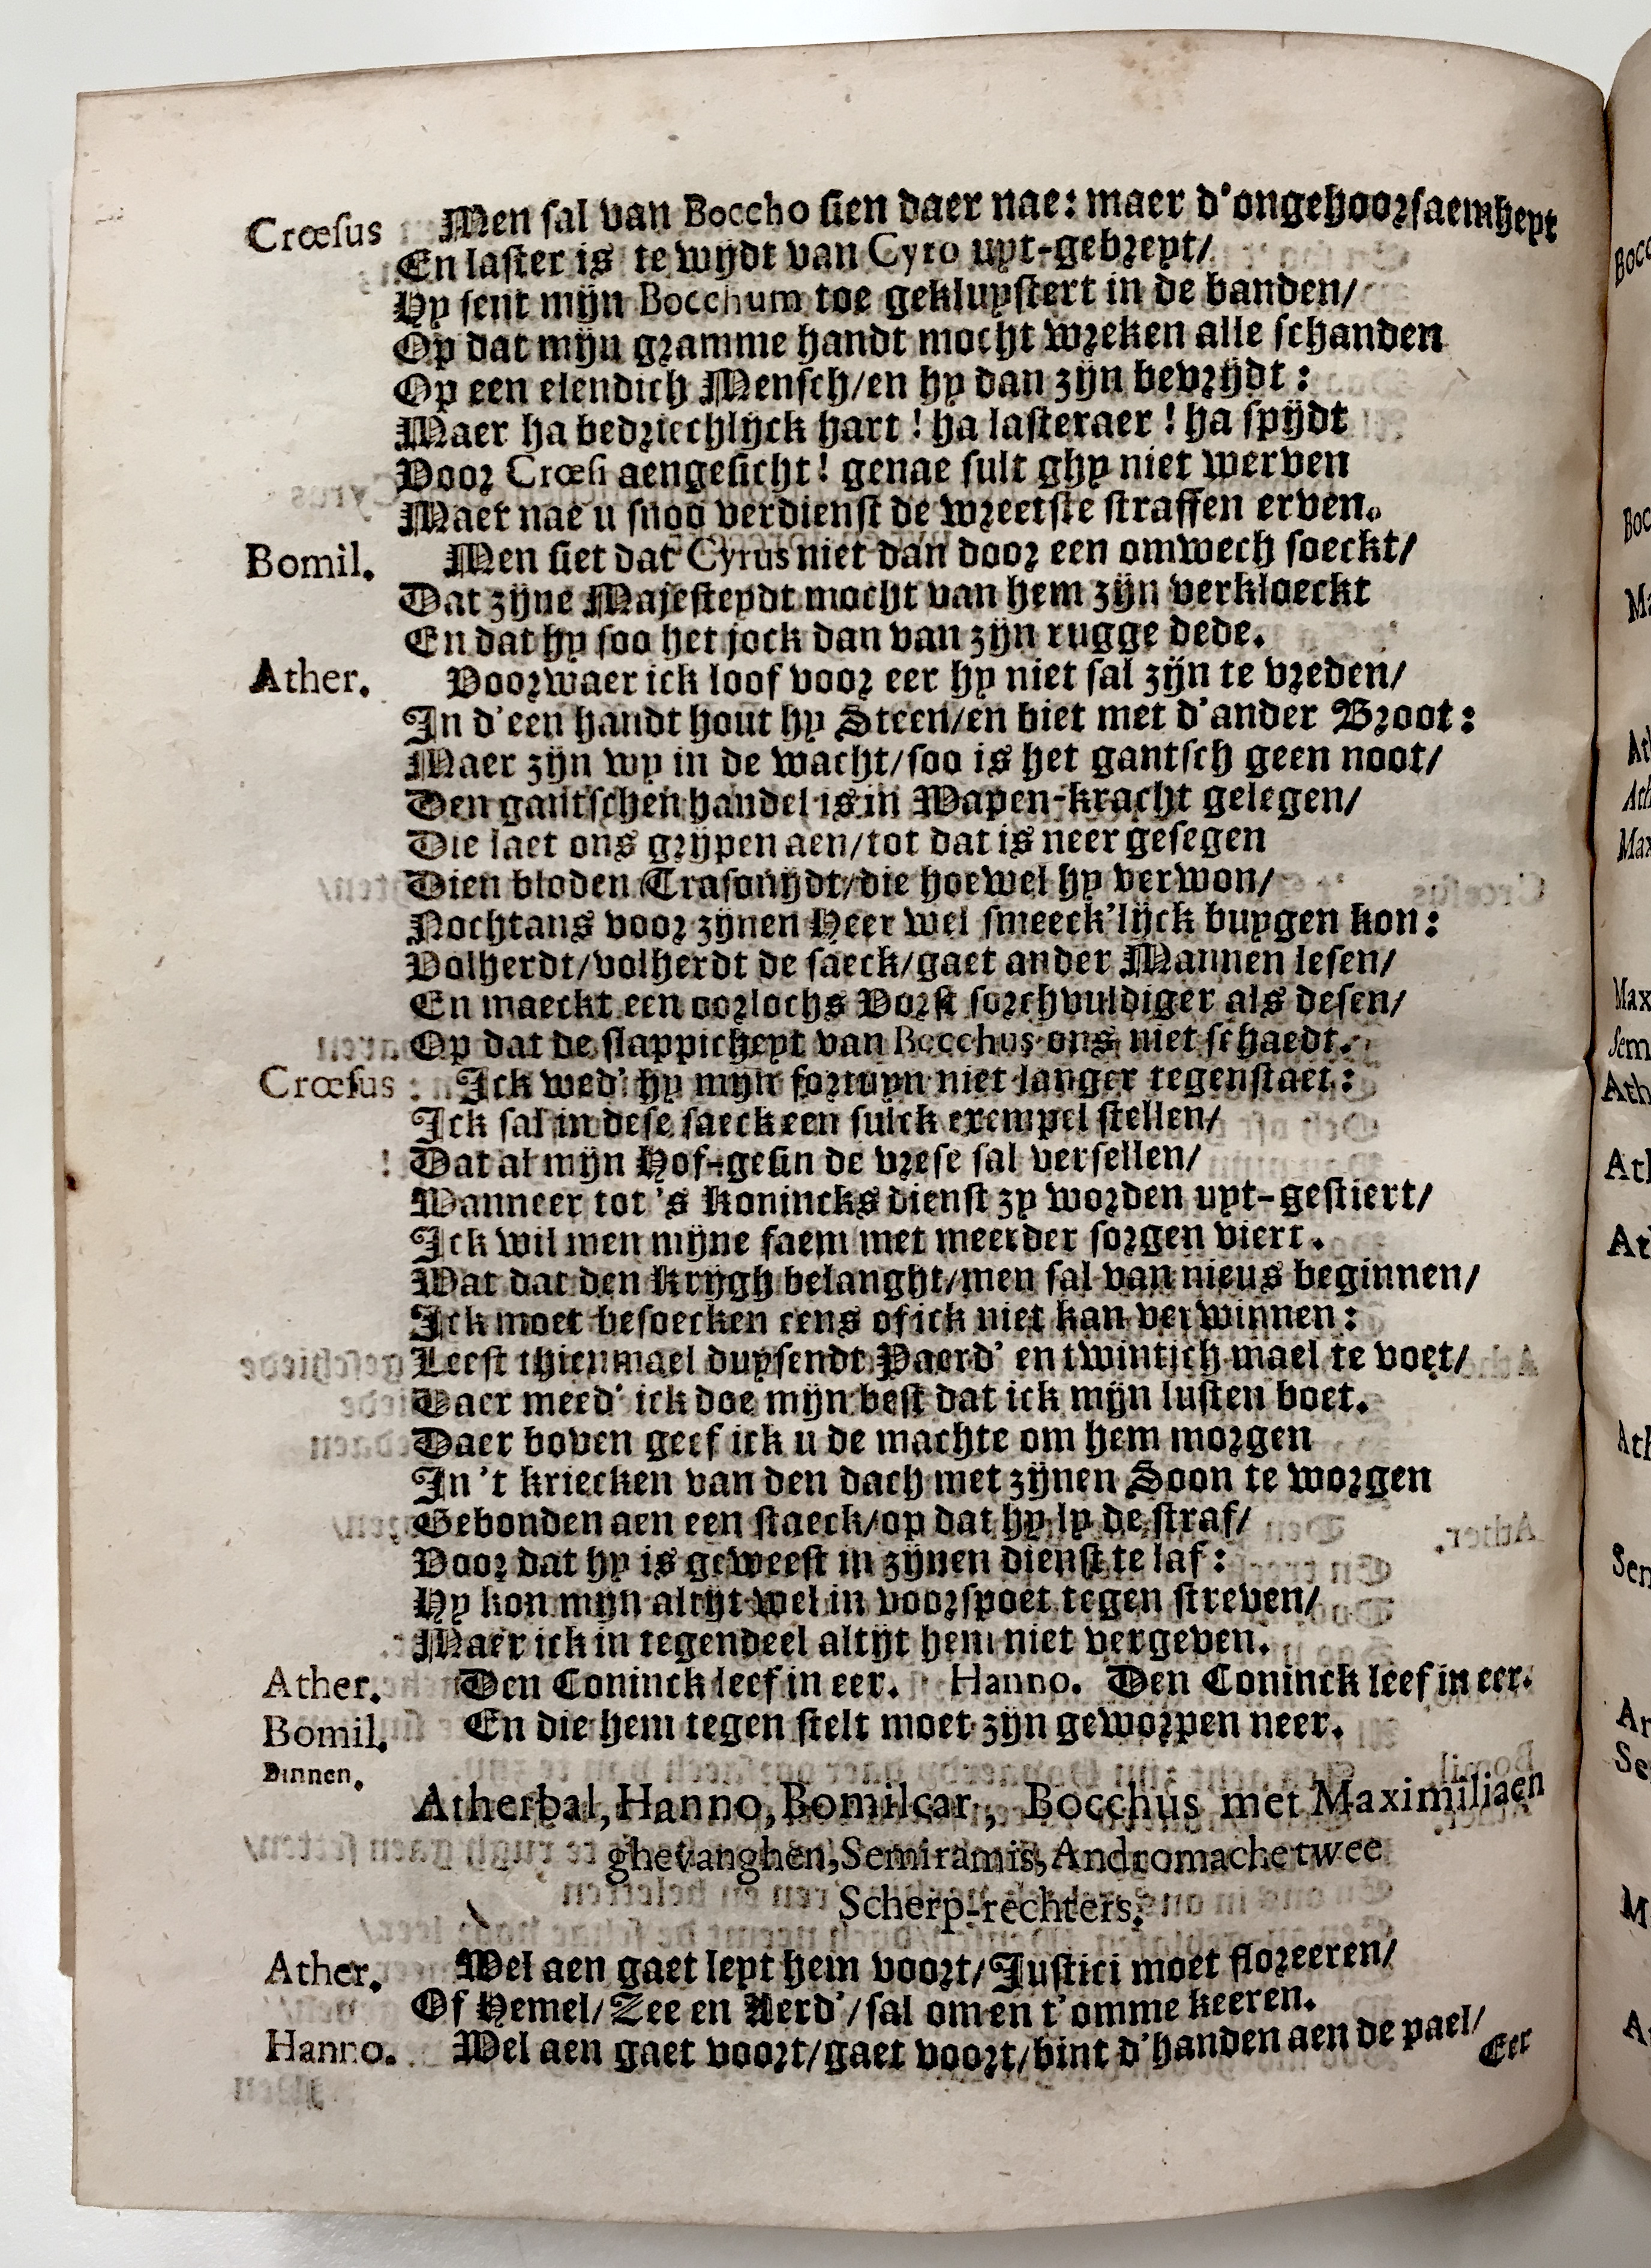 Crœsus Men sal van Boccho sien daer nae: maer d'ongehoorsaemheyt
En laster is te wijdt van Cyro uyt-gebreyt/
Hy sent mijn Bocchum toe gekluystert in de banden/
Op dat mijn gramme handt mocht wreken alle schanden
Op een elendich Mensch/en hy dan zijn bevrijdt:
Maer ha bedriechlijck hart! ha lasteraer! ha spijdt
Voor Crœsi aengesicht! genae sult ghy niet werven
Maer nae u snoo verdienst de wreetste straffen erven.
Bomil. Men siet dat Cyrus niet dan door een omwech soeckt/
Dat zijne Majesteydt mocht van hem zijn verkloeckt
En dat hy soo het jock dan van zijn rugge dede.
Ather. Voorwaer ick loof voor eer hy niet sal zijn te vreden/
In d'een handt hout hy Steen/en biet met d'ander Broot:
Maer zijn wy in de wacht/soo is het gantsch geen noot/
Den gantschen handel is in Wapen-kracht gelegen/
Die laet ons grijpen aen/tot dat is neer gesegen
Dien bloden Trasonijdt/die hoewel hy verwon/
Nochtans voor zijnen Heer wel smeeck'lijck buygen kon:
Volherdt/volherdt de saeck/gaet ander Mannen lesen/
En maeckt een oorlochs Vorst sorchvuldiger als desen/
Op dat de slappicheyt van Bocchus ons niet schaedt.
Crœsus Ick wed' hy mijn fortuyn niet langer tegenstaet:
Ick sal in dese saeck een sulck exempel stellen/
Dat al mijn Hof-gesin de vrese sal versellen/
Wanneer tot 's Konincks dienst zy worden uyt-gestiert/
Ick wil men mijne faem met meerder sorgen viert.
Wat dat den Krijgh belanght/men sal van nieus beginnen/
Ick moet besoecken eens of ick niet kan verwinnen:
Leest thienmael duysendt Paerd' en twintich mael te voet/
Daer meed' ick doe mijn best dat ick mijn lusten boet.
Daer boven geef ick u de machte om hem morgen
In 't kriecken van den dach met zijnen Soon te worgen
Gebonden aen een staeck/op dat hy ly de straf/
Voor dat hy is geweest in zijnen dienst te laf:
Hy kon mijn altijt wel in voorspoet tegen streven/
Maer ick in tegendeel altijt hem niet vergeven.
Ather. Den Coninck leef in eer. Hanno. Den Coninck leef in eer.
Bomil. En die hem tegen stelt moet zijn geworpen neer.
Binnen.
Atherbal, Hanno, Bomilcar, Bocchus met Maximiliaen
ghevanghen, Semiramis, Andromache twee
Scherp-rechters.
Ather. Wel aen gaet leyt hem voort/Justici moet floreeren/
Of Hemel/Zee en Aerd'/sal om en t'omme keeren.
Hanno. Wel aen gaet voort/gaet voort/bint d'handen aen de pael/
Eer